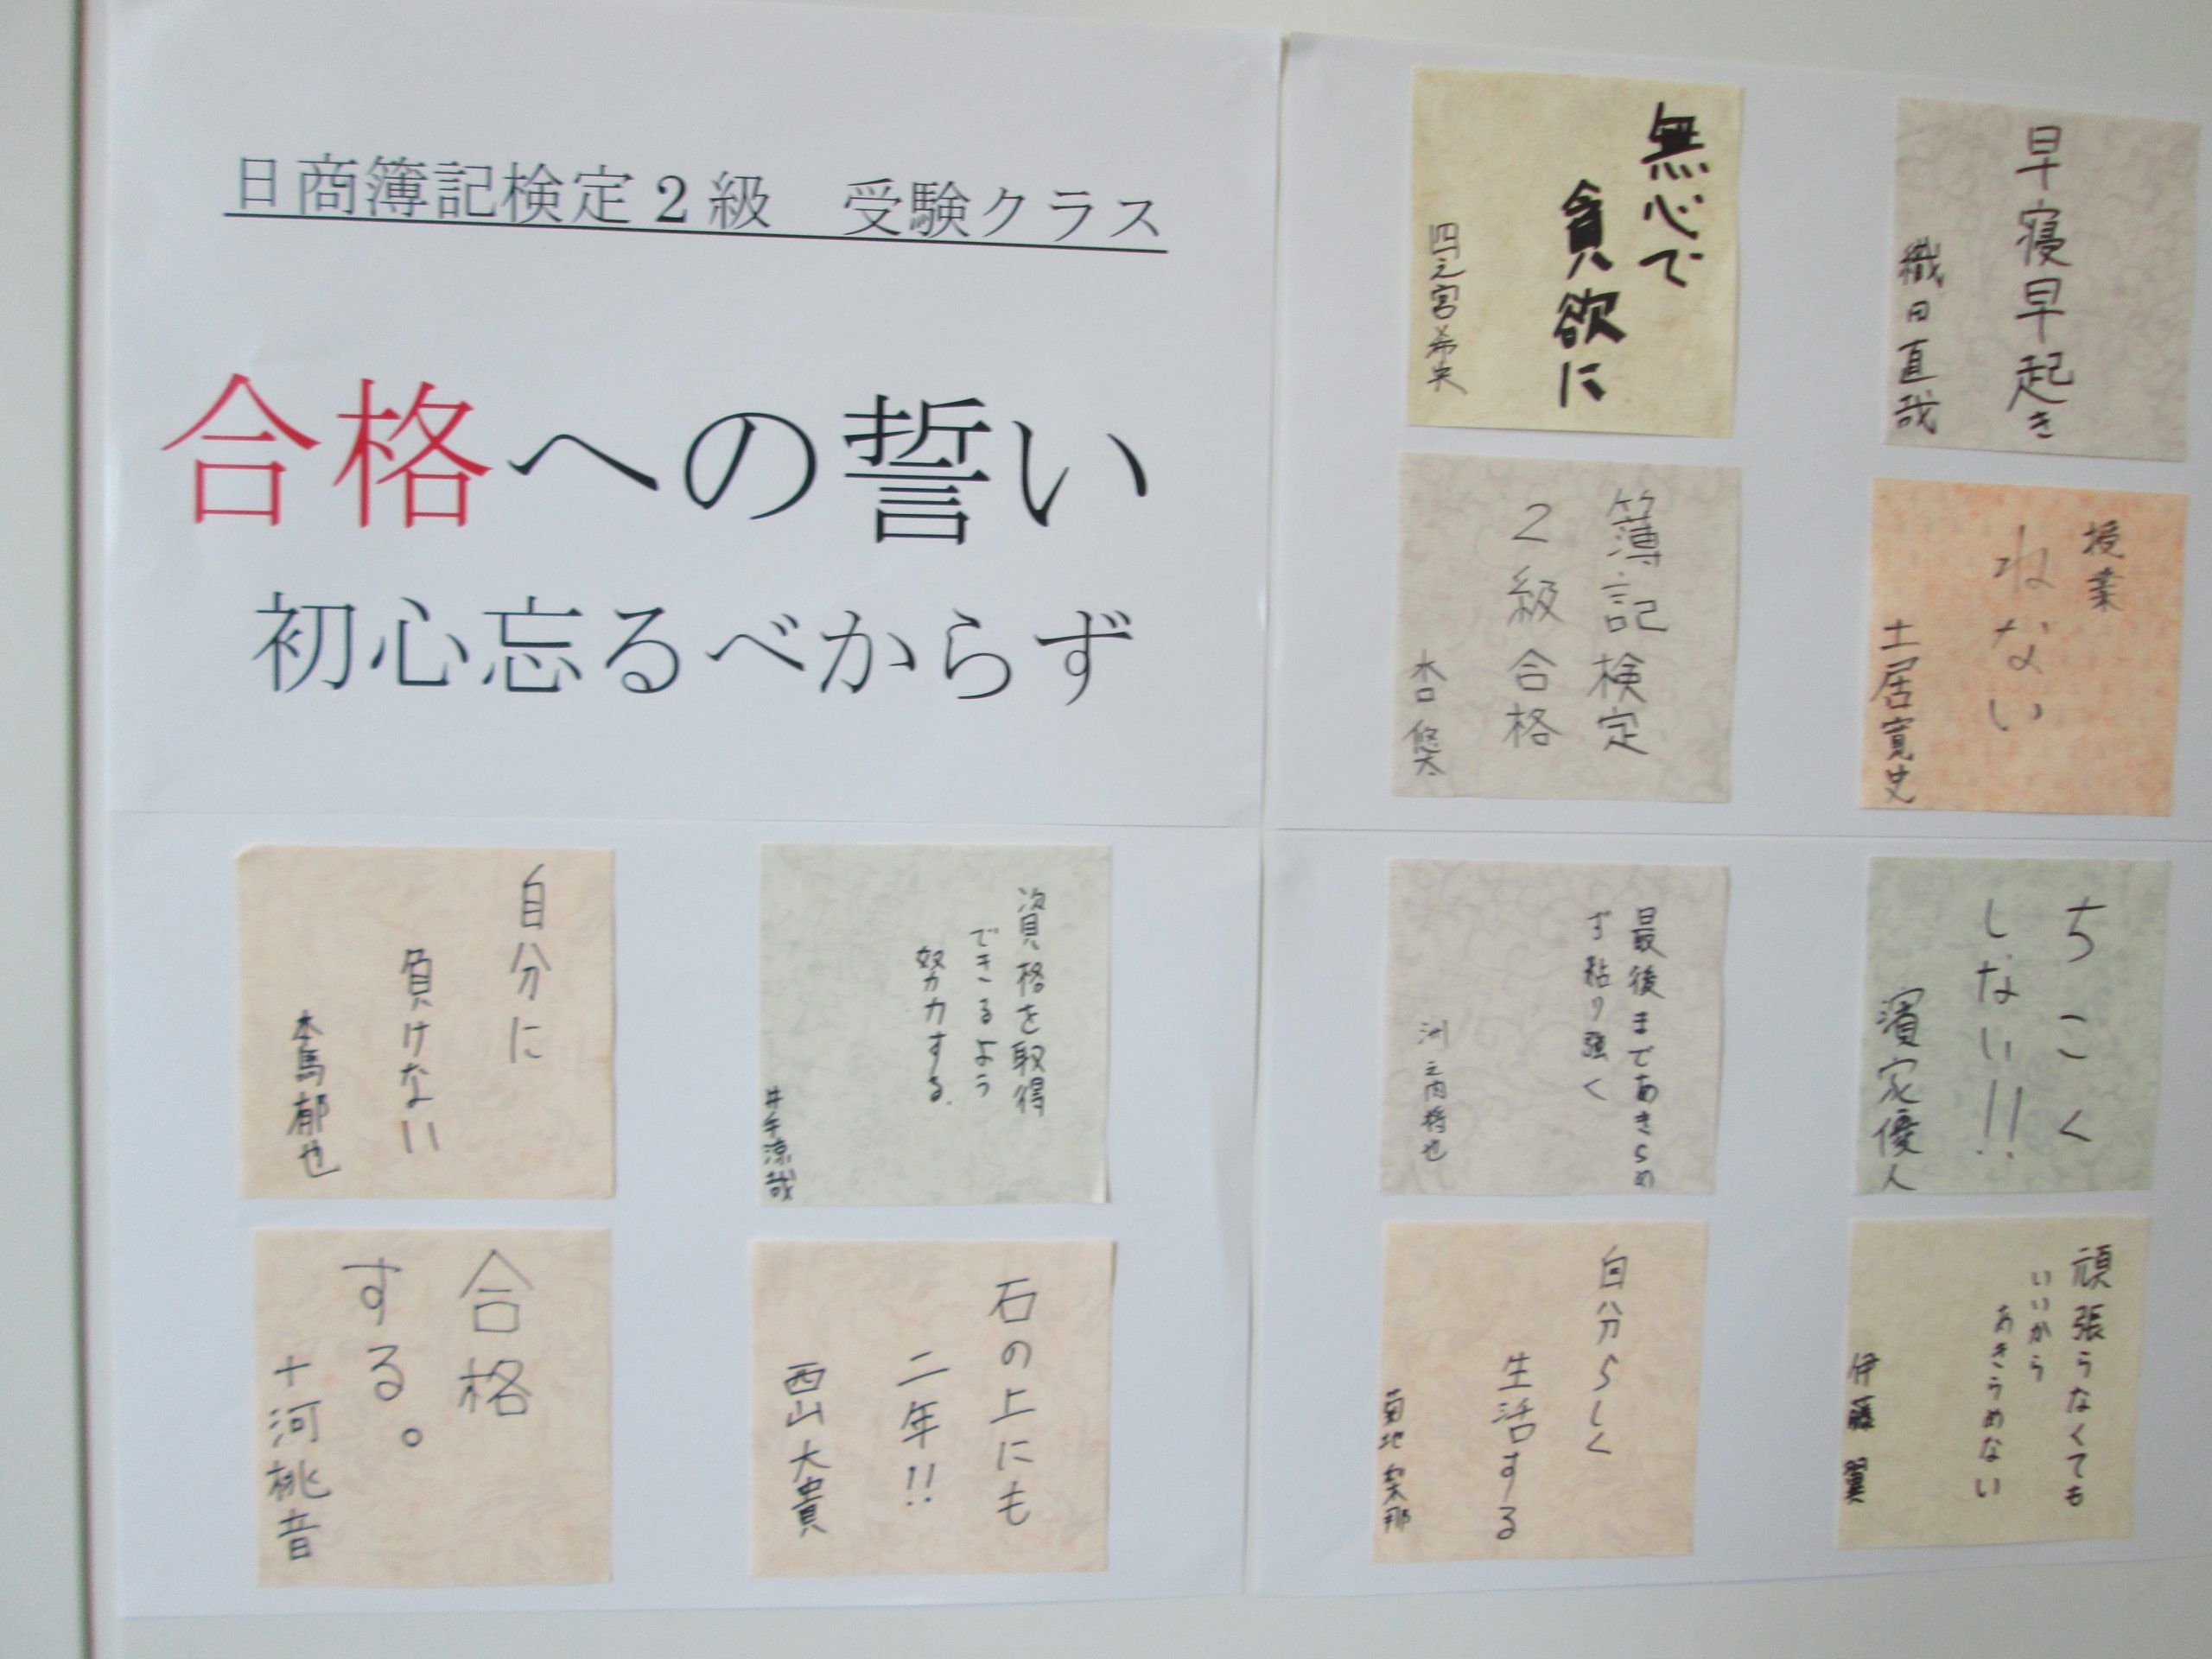 日商簿記検定2級　受験クラス
合格への誓い
初心忘るべからず
無心で
貪欲に
四之宮希央
早寝早起き
織田直哉
簿記検定
2級合格
木口悠太
授業
ねない
土居寛史
自分に
負けない
本馬郁也
資格を取得
できるよう
努力する.
井手涼哉
最後まであきらめ
ず粘り強く
洲之内将也
ちこく
しない!!
濱家優人
合格
する。
十河桃音
石の上にも
二年!!
西山大貴
自分らしく
生活する
菊地梨那
頑張らなくても
いいから
あきらめない
伊藤翼